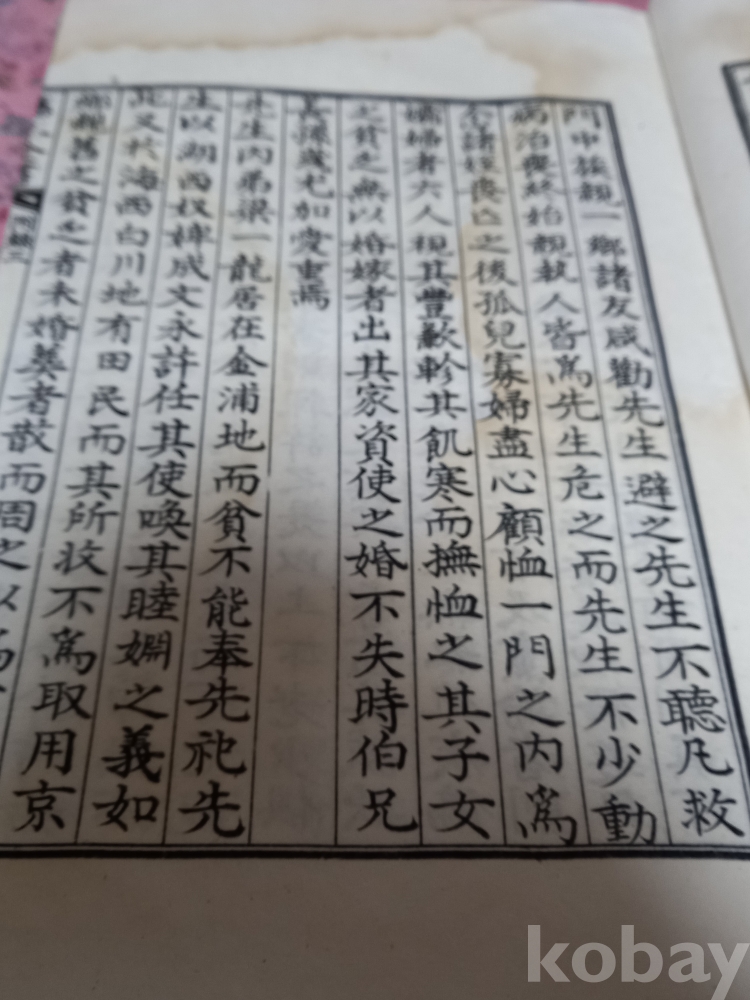 門中族親一鄕諸友咸勸先生避之先生不聽凡救
病治喪終始親執人皆爲先生危之而先生不少動
諸姪喪亡之後孤兒寡婦盡心顧恤一門之內爲
孀婦者六人視其豐歉軫其飢寒而撫恤之其子女
之貧乏無以婚嫁者出其家資使之婚不失時伯兄
長孫歲尤加愛重焉
先生內弟梁一龍居在金浦地而貧不能奉先祀先
生以湖西奴婢成文永許任其使喚其睦婣之義如
此又於海西白川地有田民而其所收不爲取用京
鄕親舊之貧乏者未婚葬者散而周之以
kobay